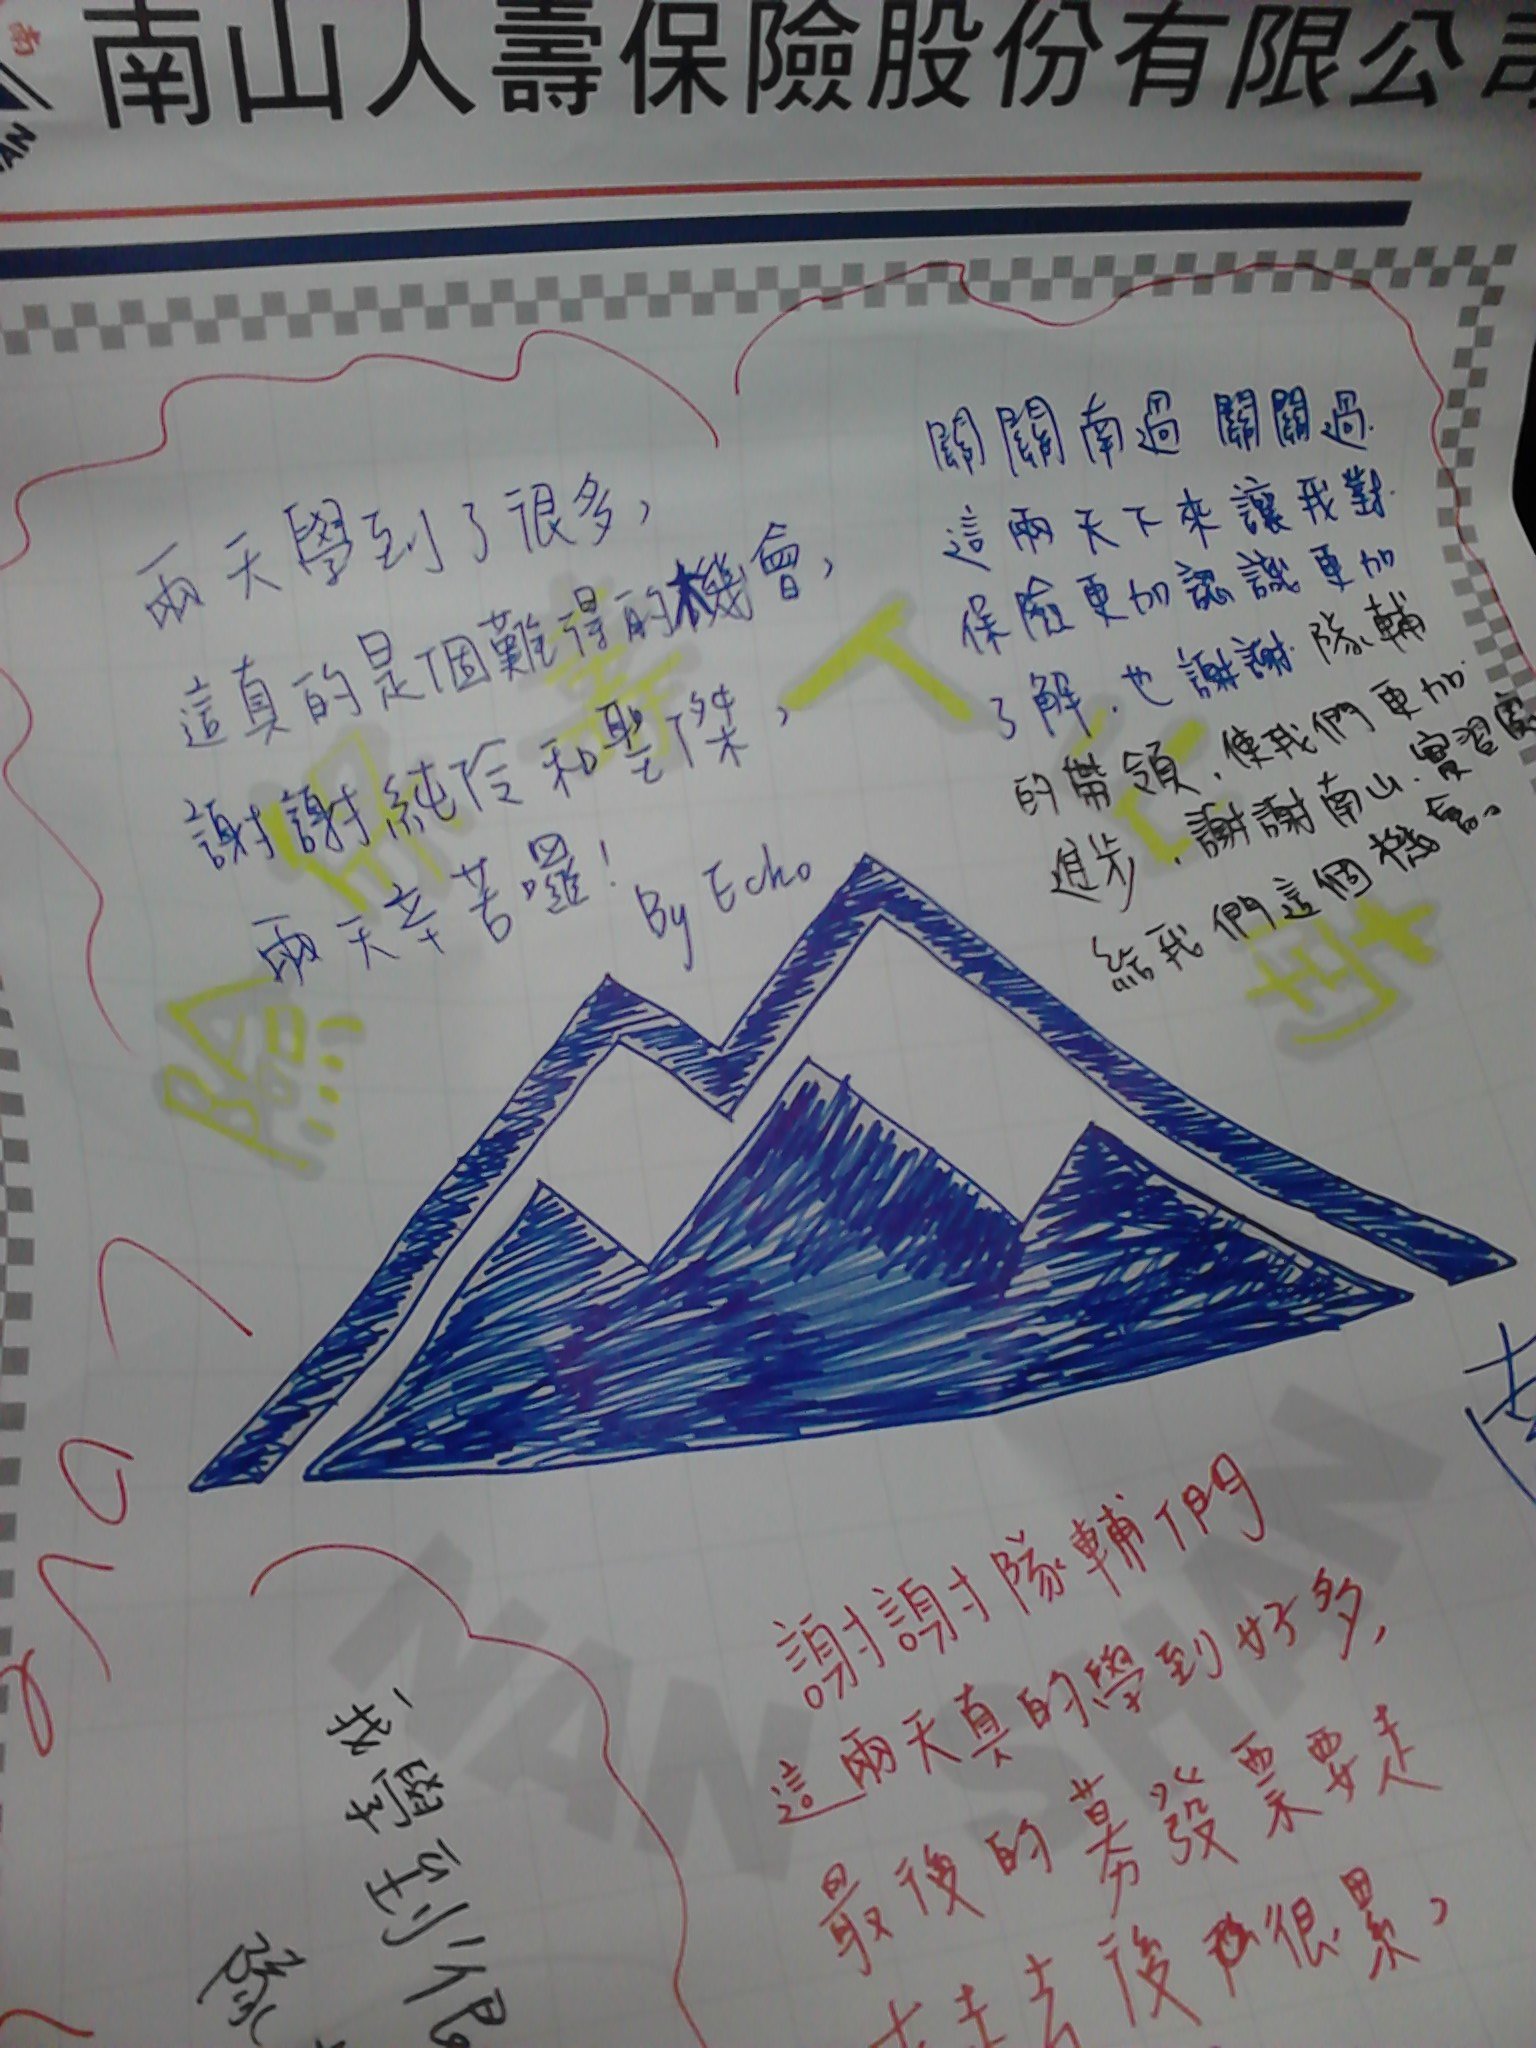 南山人壽保險股份有限公司
兩天學到了很多,
這真的是個難得的機會,
謝謝純伶和聖傑,
兩天辛苦囉!
By Echo
關關南過 關關過.
這兩天下來讓我對
保險更加認識更加
了解.也謝謝 隊輔
的帶領.使我們更加
進步.謝謝南山.實習
給我們這個機會。
險
人
NAN SHAN
謝謝隊輔們
這兩天真的學到好多,
最後的募發票要走
走去後 很累,
我學到很
隊